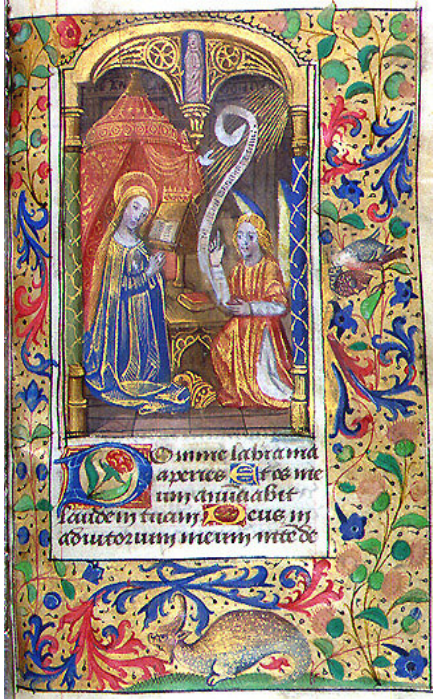 Domine labia mea
aperies Et os me
um anūciabit
laudem tuam Deus in
adiutorium meum intēde